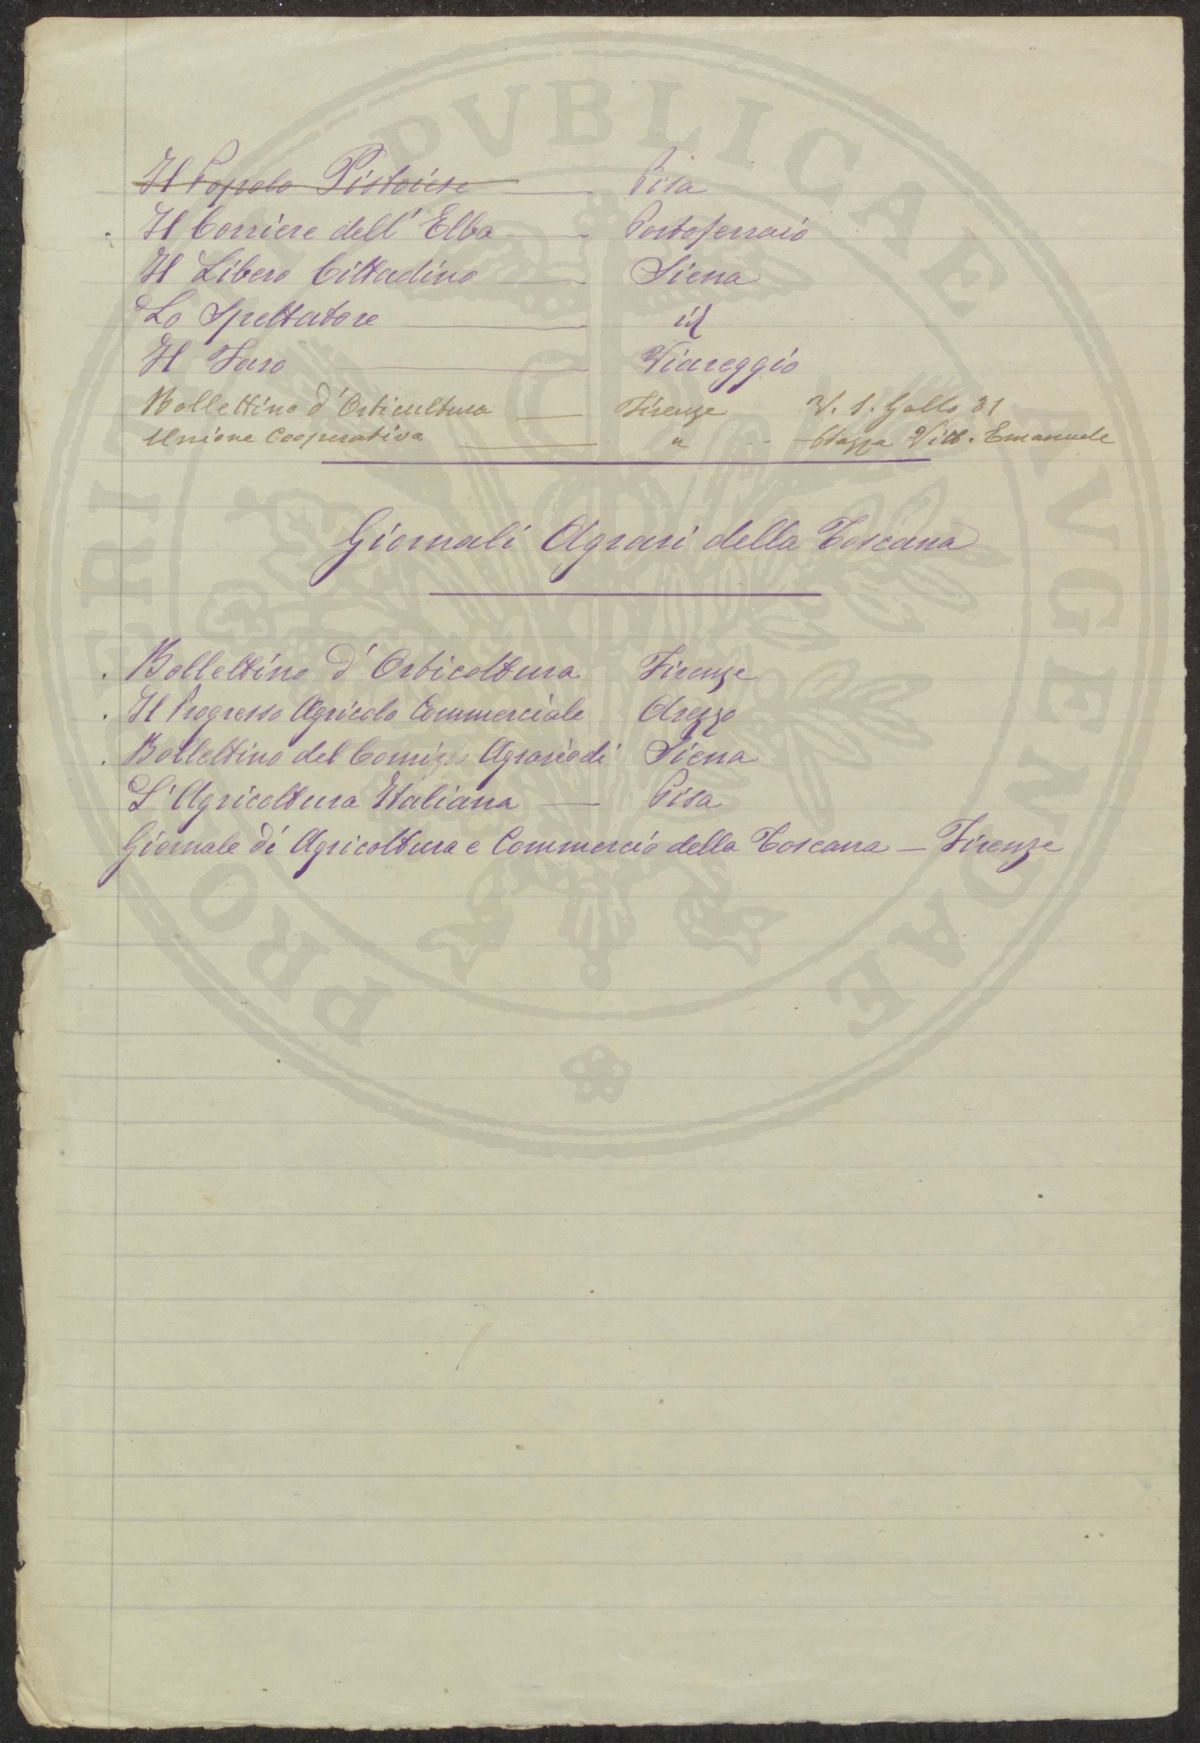 Il Popolo Pistoiese — Pisa
. Il Corriere dell' Elba — Portoferraio
Il Libero Cittadino — Siena
Lo Spettatore — id
Il Faro — Viareggio
Bollettino d' Orticultura — Firenze V. S. Gallo 31
Unione Cooperativa — " - - Piazza Vitt. Emanuele
Giornali Agrari della Toscana
. Bollettino d' Orticoltura Firenze
. Il Progresso Agricolo Commerciale Arezzo
. Bollettino del Comizio Agrario di Siena
L' Agricoltura Italiana — Pisa
Giornale di Agricoltura e Commercio della Toscana — Firenze
PRO VERITATE PVBLICAE AVGENDAE